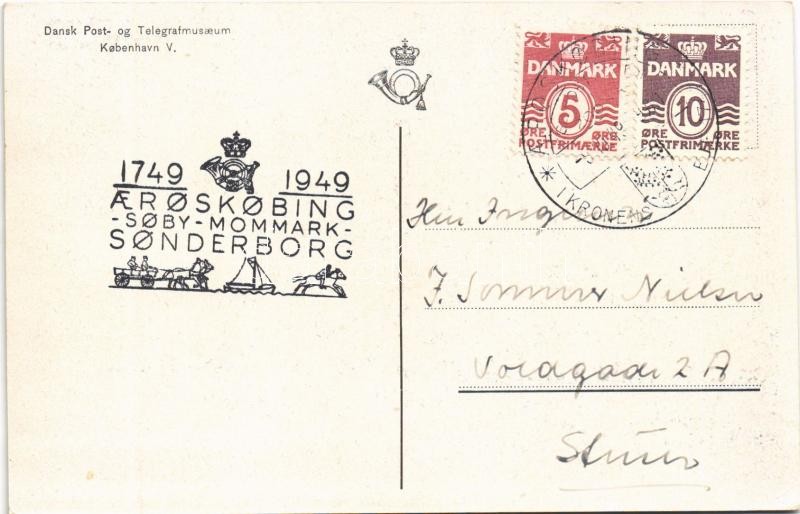 Dansk Post- og Telegrafmusæum
København V.
1749 1949
ÆRØSKØBING
-SØBY-MOMMARK-
SØNDERBORG
DANMARK
5
ØRE ØRE
POSTFRIMÆRKE
DANMARK
10
ØRE ØRE
POSTFRIMÆRKE
* I KRONENS
Herr Ingeniør
J. Sommer Nielsen
2 A
Struer